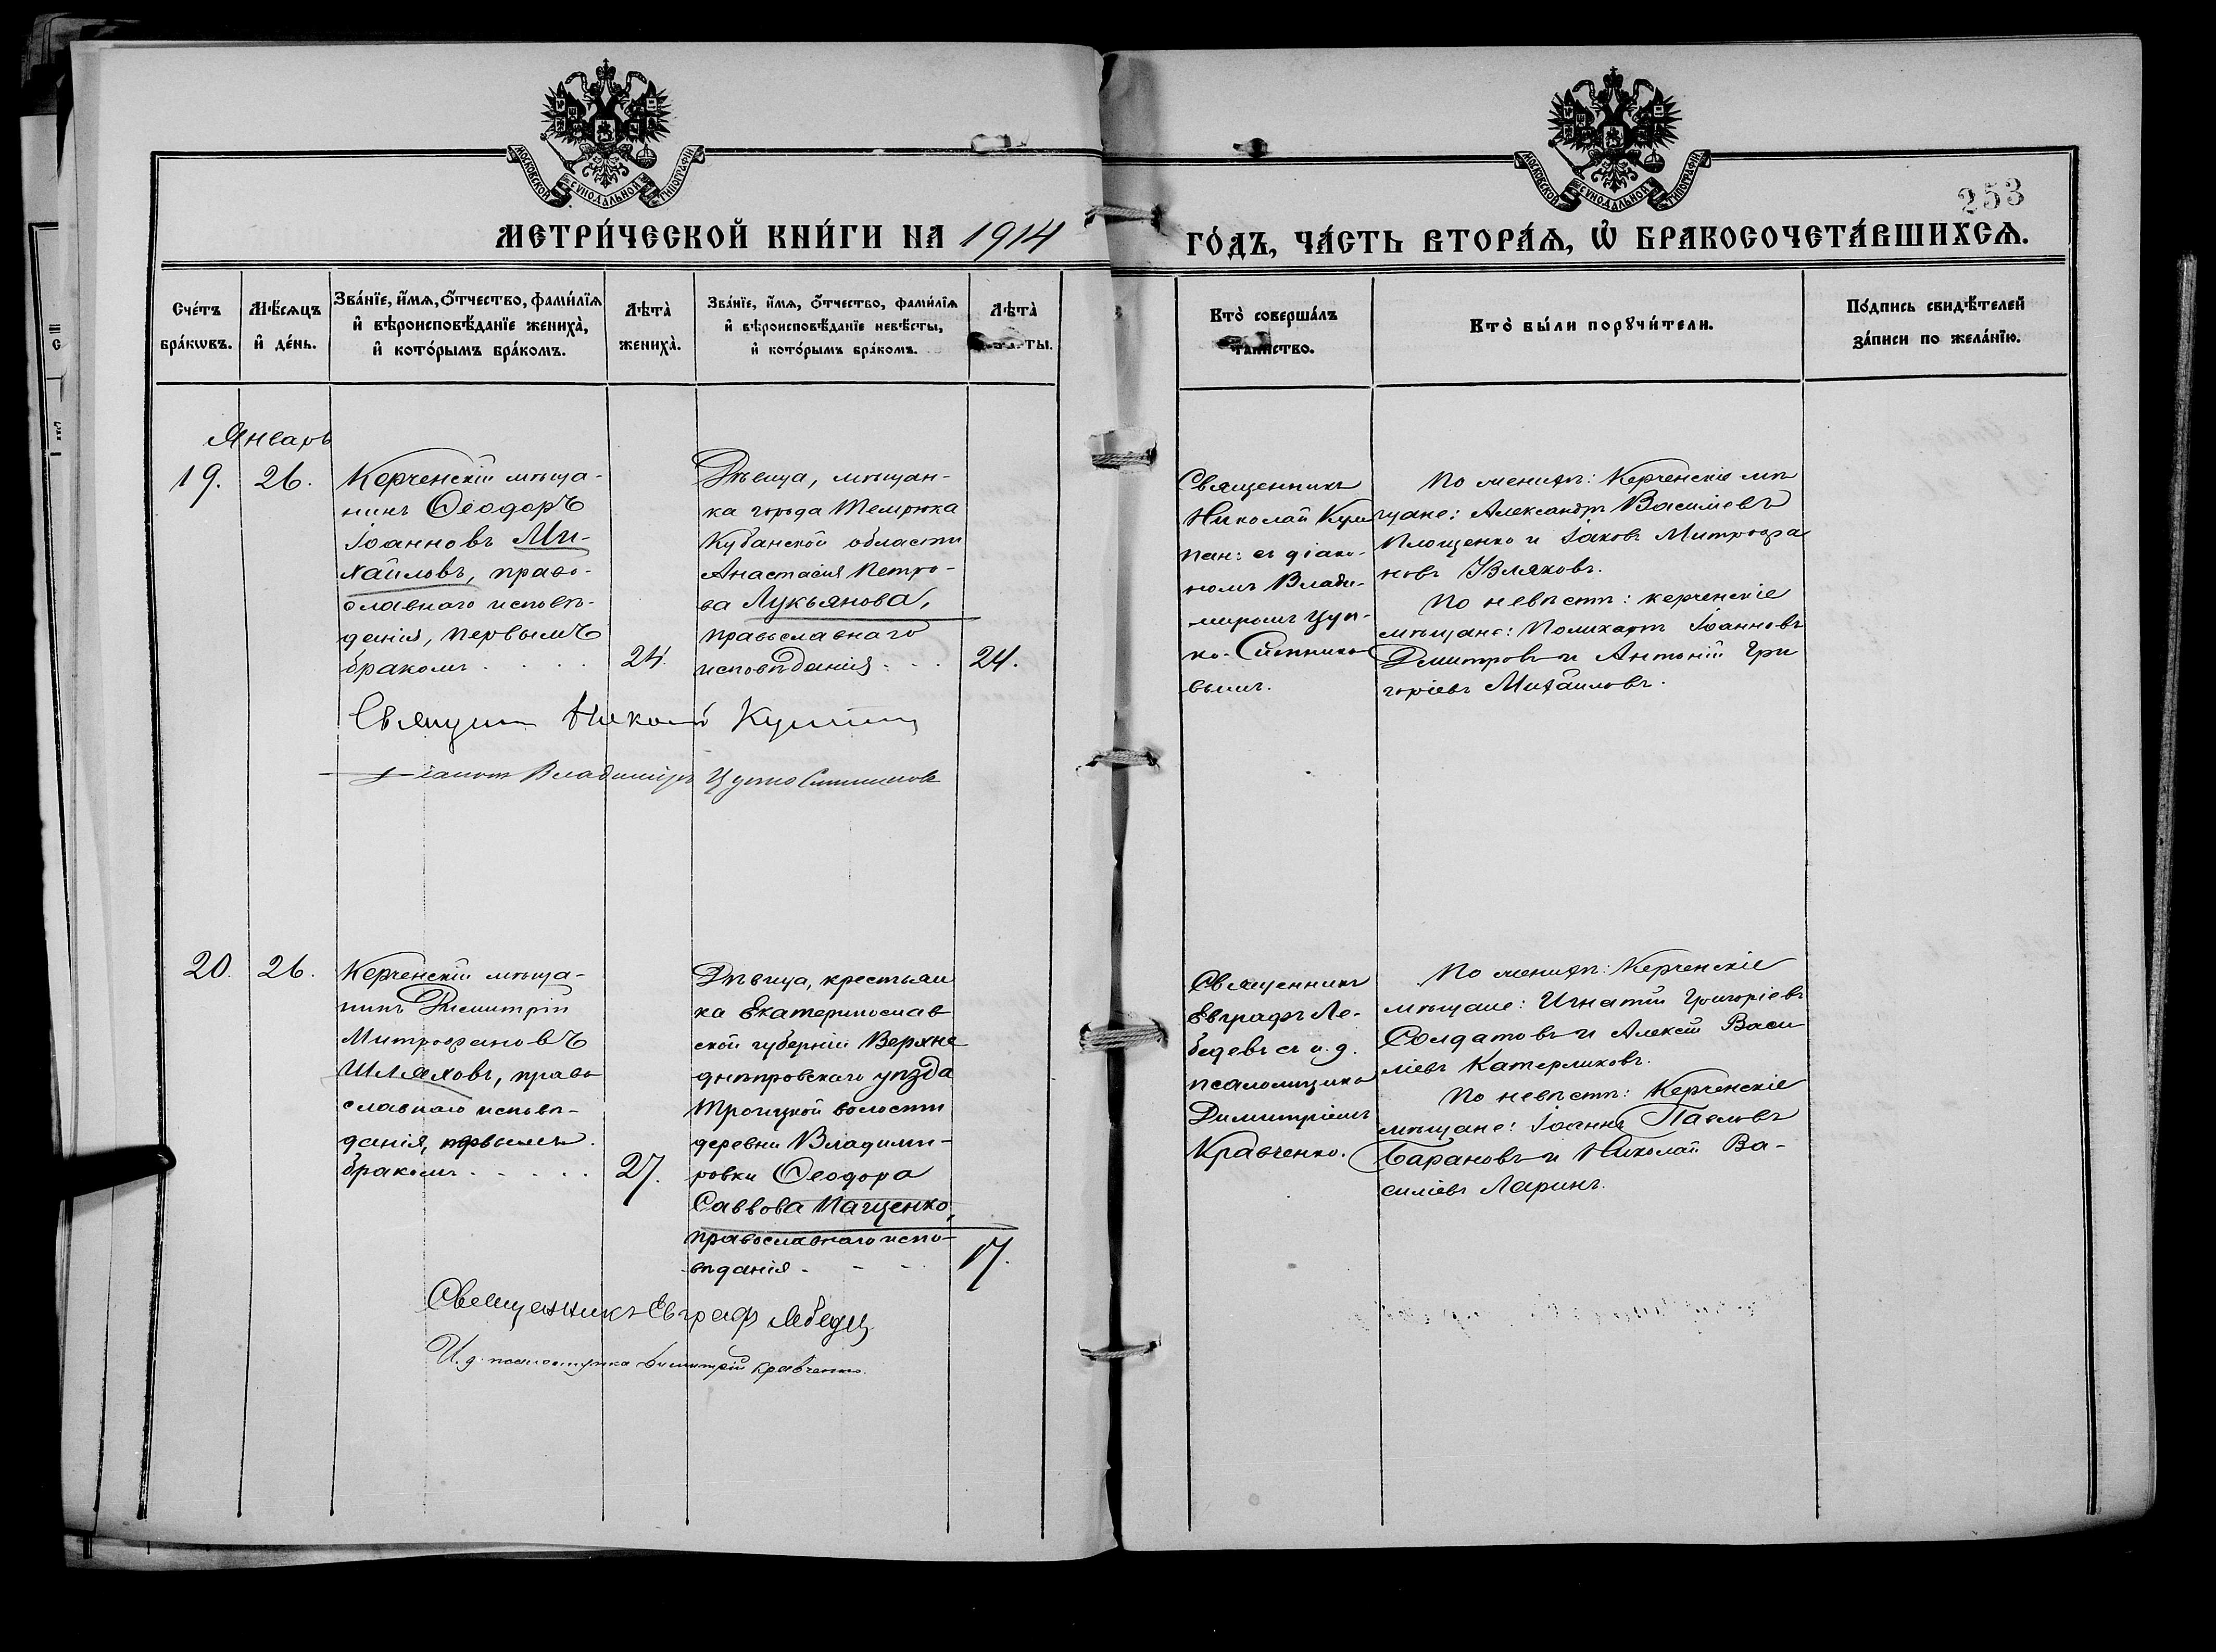 МОСКОВСКОЙ СѴНОДАЛЬНОЙ ТИПОГРАФІИ
МОСКОВСКОЙ СѴНОДАЛЬНОЙ ТИПОГРАФІИ
253
МЕТРИ́ЧЕСКОЙ КНИ́ГИ НА 1914
ГО́ДЪ, ЧА́СТЬ ВТОРА́Ѧ, Ѽ БРАКОСОЧЕТА́ВШИХСѦ.
Сче́тъ бра́кѡвъ.
Мѣ́сѧцъ и҆ де́нь.
Зва́нїе, и҆́мѧ, ѻ҆́тчество, фами́лїѧ
и҆ вѣроисповѣ́данїе жениха̀,
и҆ кото́рымъ бра́комъ.
Лѣта̀ жениха̀.
Зва́нїе, и҆́мѧ, ѻ҆́тчество, фами́лїѧ
и҆ вѣроисповѣ́данїе невѣ́сты,
и҆ кото́рымъ бра́комъ.
Лѣта̀
Кто̀ соверша́лъ
таинство.
Кто̀ вы́ли порꙋчи́тели.
По́дпись свидѣ́телей
за́писи по жела́нїю.
Январь
19.
26.
Керченскій мѣща-
нинъ Ѳеодоръ
Іоанновъ Ми-
хайловъ, право-
славнаго исповѣ-
данія, первымъ
бракомъ . . . .
24.
Дѣвица, мѣщан-
ка города Темрюка
Кубанской области
Анастасія Петро-
ва Лукьянова,
православнаго
исповѣданія . . .
24.
Священникъ
Николай Кум
пан: съ діако-
номъ Влади-
миромъ Цуп-
ко-Ситнико
вымъ.
По женихѣ: Керченскіе мѣ
щане: Александръ Васильевъ
Площенко и Іаковъ Митрофа
новъ Шляховъ.
По невѣстѣ: керченскіе
мѣщане: Поликарпъ Іоанновъ
Дмитровъ и Антоній Гри
горіевъ Михайловъ.
Священ Николай
діаконъ Владиміръ Цупко Ситниковъ
20.
26.
Керченскій мѣща-
нинъ Димитрій
Митрофановъ
Шляховъ, право
славнаго исповѣ-
данія, первымъ
бракомъ . . . . .
27.
Дѣвица, крестьян
ка Екатеринослав
ской губерніи Верхне
днѣпровскаго уѣзда
Троицкой волости
деревни Владими-
ровки Ѳеодора
Саввова Пащенко,
православнаго испо-
вѣданія - - - -
17.
Священникъ
Евграфъ Ле-
бедевъ съ и. д.
псаломщика
Димитріемъ
Кравченко.
По женихѣ: Керченскіе
мѣщане: Игнатій Григоріевъ
Солдатовъ и Алексій Васи
ліевъ Катерликовъ.
По невѣстѣ: Керченскіе
мѣщане: Іоаннъ Павловъ
Барановъ и Николай Ва-
силіевъ Ларинъ.
Священникъ Евграфъ Лебедев
И. д. псаломщика Димитрій Кравченко.